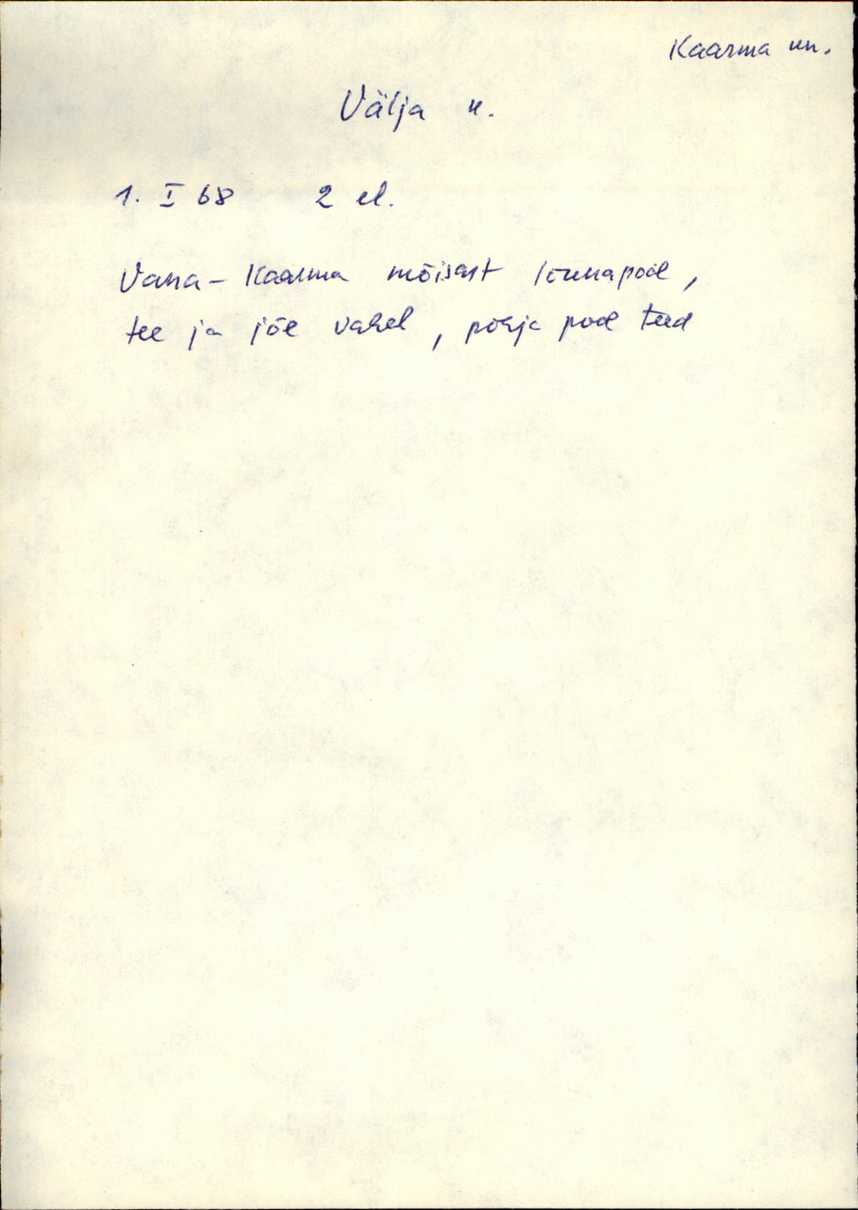 Kaarma un.
Välja k.
1. I 68 2 el.
Vana-Kaarma mõisast lõunapool,
tee ja jõe vahel, põhja pool teed